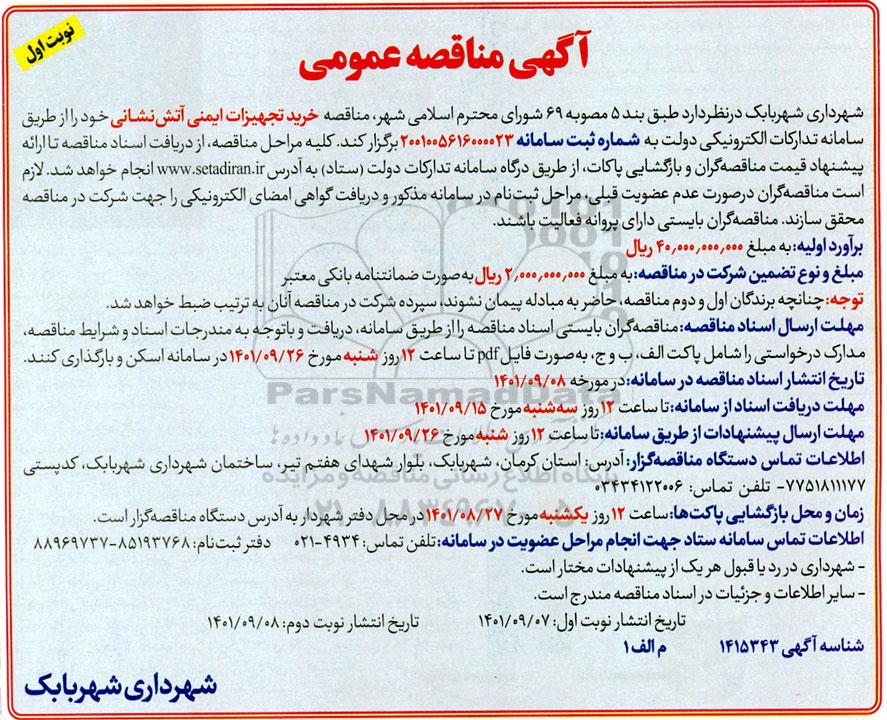 نوبت اول
آگهی مناقصه عمومی
شهرداری شهربابک درنظردارد طبق بند ۵ مصوبه ۶۹ شورای محترم اسلامی شهر، مناقصه خرید تجهیزات ایمنی آتش‌نشانی خود را از طریق
سامانه تدارکات الکترونیکی دولت به شماره ثبت سامانه ۲۰۰۱۰۰۵۶۱۶۰۰۰۰۲۳ برگزار کند. کلیه مراحل مناقصه، از دریافت اسناد مناقصه تا ارائه
پیشنهاد قیمت مناقصه‌گران و بازگشایی پاکات، از طریق درگاه سامانه تدارکات دولت (ستاد) به آدرس www.setadiran.ir انجام خواهد شد. لازم
است مناقصه‌گران درصورت عدم عضویت قبلی، مراحل ثبت‌نام در سامانه مذکور و دریافت گواهی امضای الکترونیکی را جهت شرکت در مناقصه
محقق سازند. مناقصه‌گران بایستی دارای پروانه فعالیت باشند.
برآورد اولیه: به مبلغ ۴۰,۰۰۰,۰۰۰,۰۰۰ ریال
مبلغ و نوع تضمین شرکت در مناقصه: به مبلغ ۲,۰۰۰,۰۰۰,۰۰۰ ریال به‌صورت ضمانتنامه بانکی معتبر
توجه: چنانچه برندگان اول و دوم مناقصه، حاضر به مبادله پیمان نشوند، سپرده شرکت در مناقصه آنان به ترتیب ضبط خواهد شد.
مهلت ارسال اسناد مناقصه: مناقصه‌گران بایستی اسناد مناقصه را از طریق سامانه، دریافت و باتوجه به مندرجات اسناد و شرایط مناقصه،
مدارک درخواستی را شامل پاکت الف، ب و ج، به‌صورت فایل pdf تا ساعت ۱۲ روز شنبه مورخ ۱۴۰۱/۰۹/۲۶ در سامانه اسکن و بارگذاری کنند.
تاریخ انتشار اسناد مناقصه در سامانه: در مورخه ۱۴۰۱/۰۹/۰۸
مهلت دریافت اسناد از سامانه: تا ساعت ۱۲ روز سه‌شنبه مورخ ۱۴۰۱/۰۹/۱۵
مهلت ارسال پیشنهادات از طریق سامانه: تا ساعت ۱۲ روز شنبه مورخ ۱۴۰۱/۰۹/۲۶
اطلاعات تماس دستگاه مناقصه‌گزار: آدرس: استان کرمان، شهربابک، بلوار شهدای هفتم تیر، ساختمان شهرداری شهربابک، کدپستی
۷۷۵۱۸۱۱۱۷۷- تلفن تماس: ۰۳۴۳۴۱۲۲۰۰۶
زمان و محل بازگشایی پاکت‌ها: ساعت ۱۲ روز یکشنبه مورخ ۱۴۰۱/۰۸/۲۷ در محل دفتر شهردار به آدرس دستگاه مناقصه‌گزار است.
اطلاعات تماس سامانه ستاد جهت انجام مراحل عضویت در سامانه: تلفن تماس: ۴۹۳۴-۰۲۱ دفتر ثبت‌نام: ۸۵۱۹۳۷۶۸-۸۸۹۶۹۷۳۷
- شهرداری در رد یا قبول هر یک از پیشنهادات مختار است.
- سایر اطلاعات و جزئیات در اسناد مناقصه مندرج است.
تاریخ انتشار نوبت اول: ۱۴۰۱/۰۹/۰۷ تاریخ انتشار نوبت دوم: ۱۴۰۱/۰۹/۰۸
شناسه آگهی ۱۴۱۵۳۴۳ م الف ۱
شهرداری شهربابک
ParsNamadData
پایگاه اطلاع رسانی مناقصه و مزایده